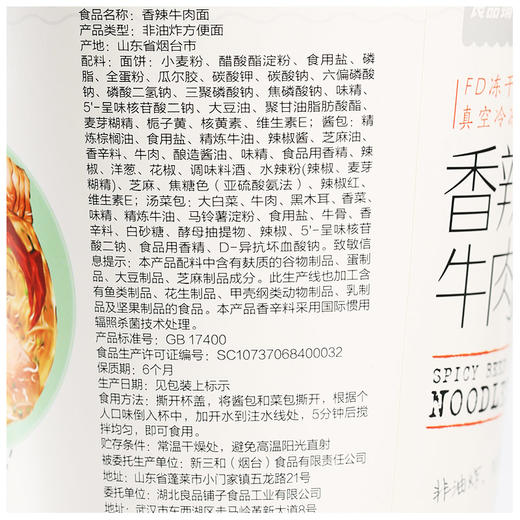 良品铺
食品名称：香辣牛肉面
产品类型：非油炸方便面
产地：山东省烟台市
配料：面饼：小麦粉、醋酸酯淀粉、食用盐、磷
脂、全蛋粉、瓜尔胶、碳酸钾、碳酸钠、六偏磷酸
钠、磷酸二氢钠、三聚磷酸钠、焦磷酸钠、味精、
5'-呈味核苷酸二钠、大豆油、聚甘油脂肪酸酯、
麦芽糊精、栀子黄、核黄素、维生素E；酱包：精
炼棕榈油、食用盐、精炼牛油、辣椒酱、芝麻油、
香辛料、牛肉、酿造酱油、味精、食品用香精、辣
椒、洋葱、花椒、调味料酒、水辣粉(辣椒、麦芽
糊精)、芝麻、焦糖色（亚硫酸氨法）、辣椒红、
维生素E；汤菜包：大白菜、牛肉、黑木耳、香菜、
味精、精炼牛油、马铃薯淀粉、食用盐、牛骨、香
辛料、白砂糖、酵母抽提物、辣椒、5'-呈味核苷
酸二钠、食品用香精、D-异抗坏血酸钠。致敏信
息提示：本产品配料中含有麸质的谷物制品、蛋制
品、大豆制品、芝麻制品成分。此生产线也加工含
有鱼类制品、花生制品、甲壳纲类动物制品、乳制
品及坚果制品的食品。本产品香辛料采用国际惯用
辐照杀菌技术处理。
产品标准号：GB 17400
食品生产许可证编号：SC10737068400032
保质期：6个月
生产日期：见包装上标示
食用方法：撕开杯盖，将酱包和菜包撕开，根据个
人口味倒入杯中，加开水到注水线处，5分钟后搅
拌均匀，即可食用。
贮存条件：常温干燥处，避免高温阳光直射
被委托生产单位：新三和（烟台）食品有限责任公司
地址：山东省蓬莱市小门家镇五龙路21号
委托单位：湖北良品铺子食品工业有限公司
地址：武汉市东西湖区走马岭革新大道8号
FD冻干
真空冷冻
香辣
牛肉
SPICY BEEF
NOODLE
非油炸